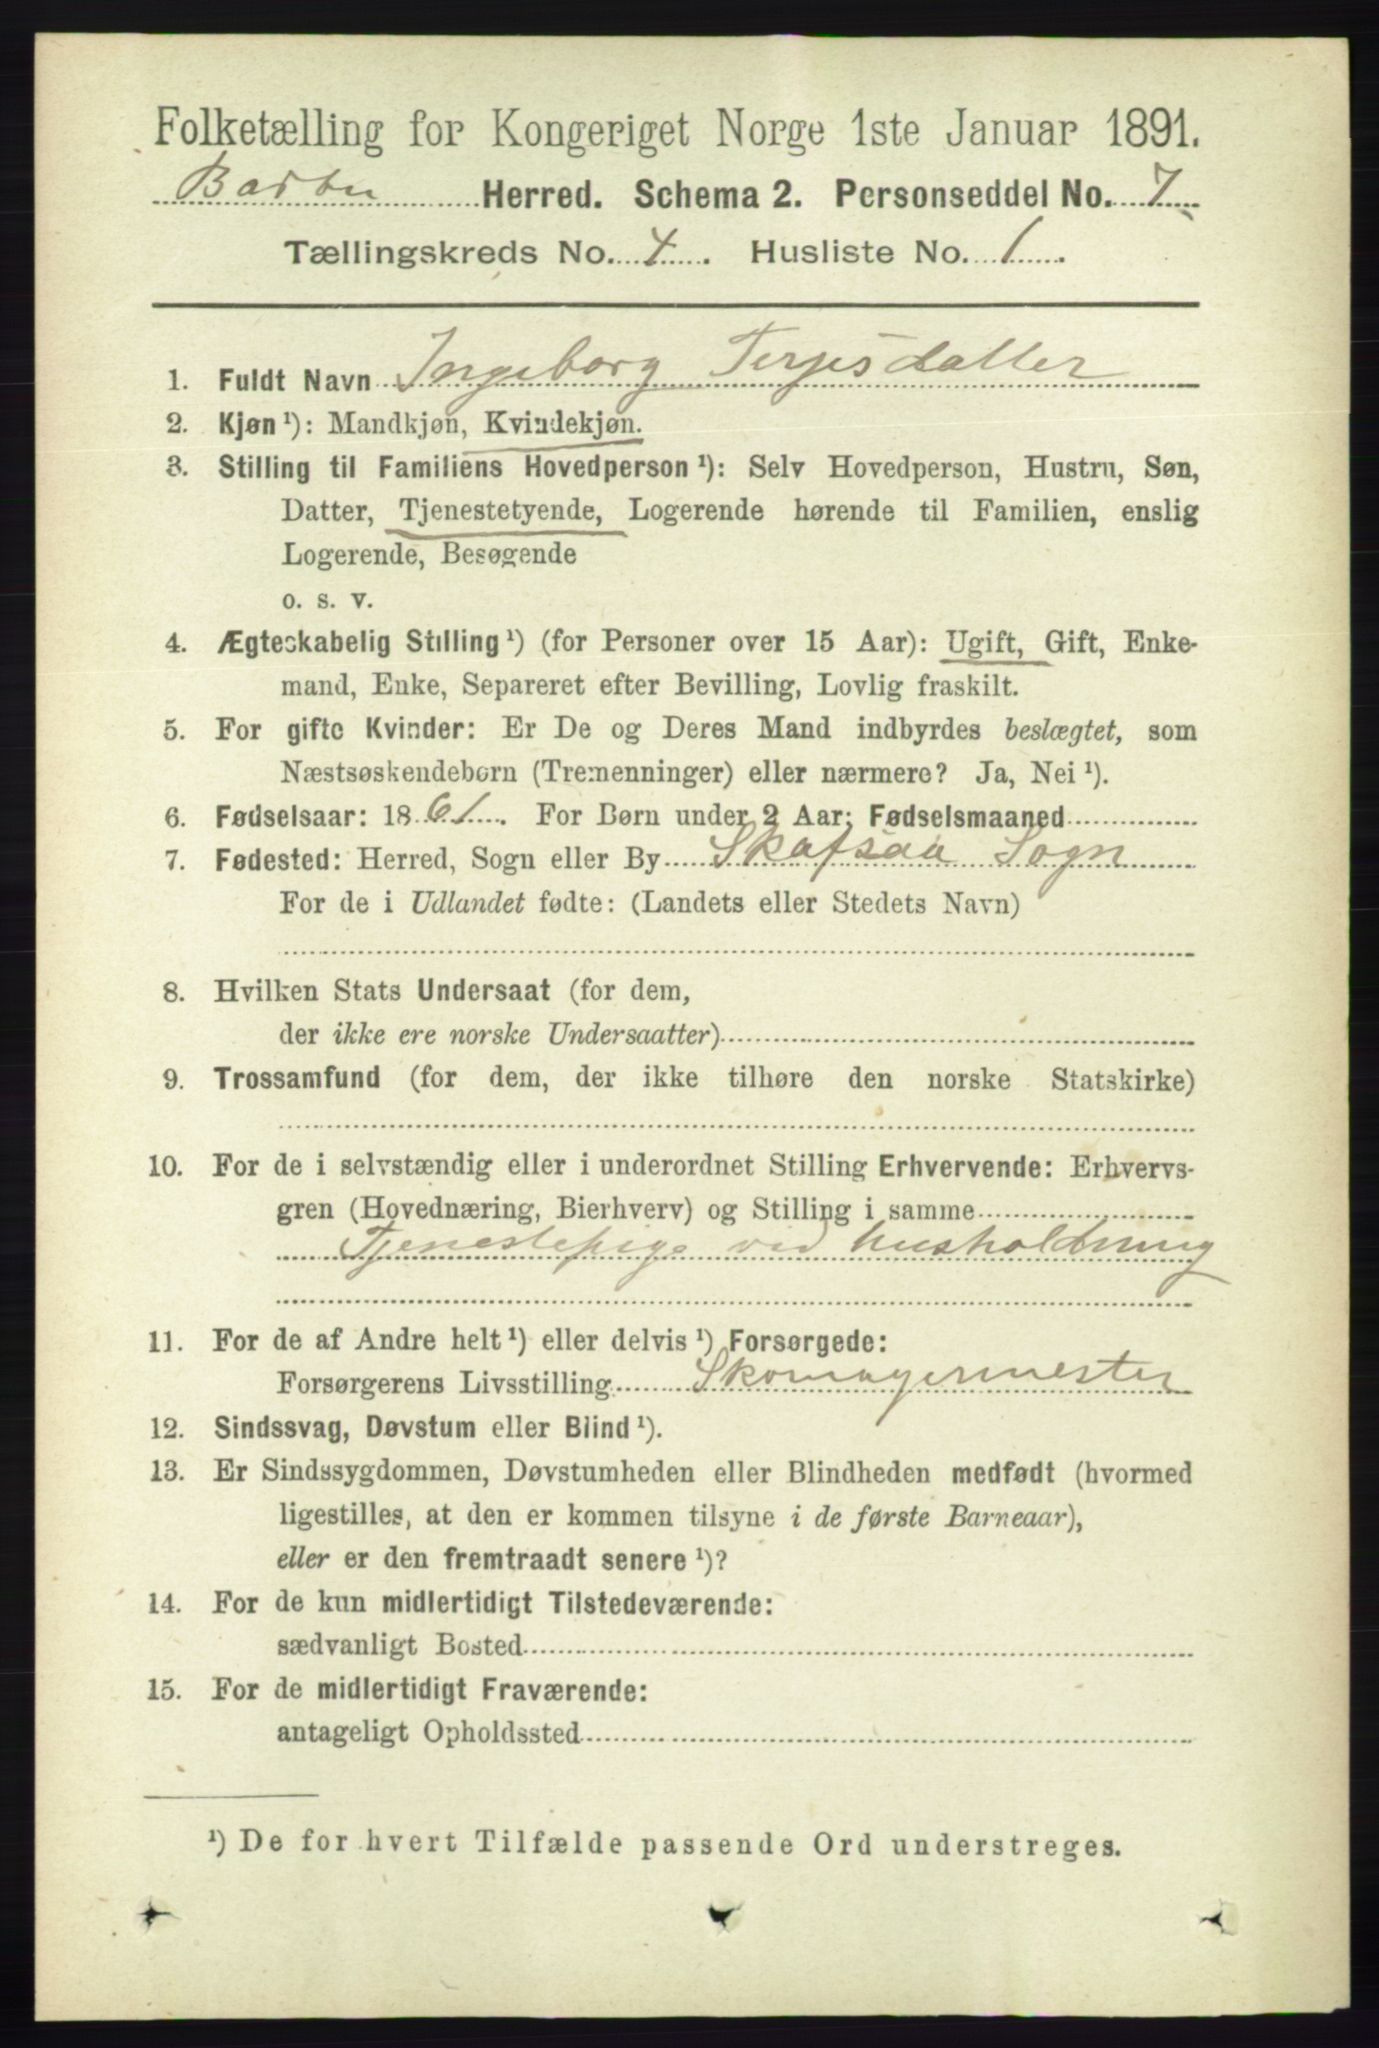 Folketælling for Kongeriget Norge 1ste Januar 1891.
Barbu Herred. Schema 2. Personseddel No. 7
Tællingskreds No. 4. Husliste No. 1.
1. Fuldt Navn Ingeborg Terjesdatter
2. Kjøn ¹): Mandkjøn, Kvindekjøn.
3. Stilling til Familiens Hovedperson ¹): Selv Hovedperson, Hustru, Søn,
Datter, Tjenestetyende, Logerende hørende til Familien, enslig
Logerende, Besøgende
o. s. v.
4. Ægteskabelig Stilling ¹) (for Personer over 15 Aar): Ugift, Gift, Enke-
mand, Enke, Separeret efter Bevilling, Lovlig fraskilt.
5. For gifte Kvinder: Er De og Deres Mand indbyrdes beslægtet, som
Næstsøskendebørn (Tremenninger) eller nærmere? Ja, Nei ¹).
6. Fødselsaar: 1861. For Børn under 2 Aar: Fødselsmaaned
7. Fødested: Herred, Sogn eller By Skafsaa Sogn
For de i Udlandet fødte: (Landets eller Stedets Navn)
8. Hvilken Stats Undersaat (for dem,
der ikke ere norske Undersaatter)
9. Trossamfund (for dem, der ikke tilhøre den norske Statskirke)
10. For de i selvstændig eller i underordnet Stilling Erhvervende: Erhvervs-
gren (Hovednæring, Bierhverv) og Stilling i samme
Tjenestepige ved husholdning
11. For de af Andre helt ¹) eller delvis ¹) Forsørgede:
Forsørgerens Livsstilling Skomagermester
12. Sindssvag, Døvstum eller Blind ¹).
13. Er Sindssygdommen, Døvstumheden eller Blindheden medfødt (hvormed
ligestilles, at den er kommen tilsyne i de første Barneaar),
eller er den fremtraadt senere ¹)?
14. For de kun midlertidigt Tilstedeværende:
sædvanligt Bosted
15. For de midlertidigt Fraværende:
antageligt Opholdssted
¹) De for hvert Tilfælde passende Ord understreges.